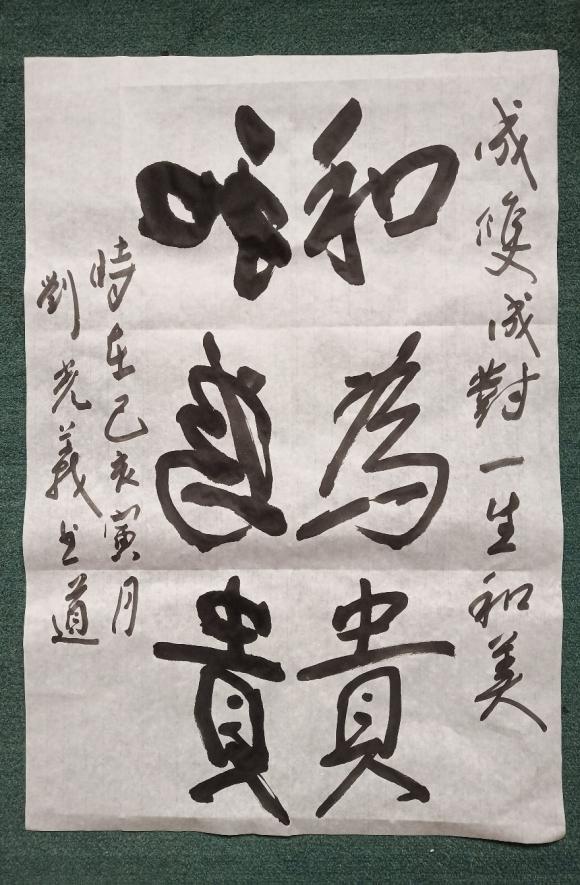 成雙成對一生和美
和為貴
和為貴
時在己亥寅月
劉光義书道